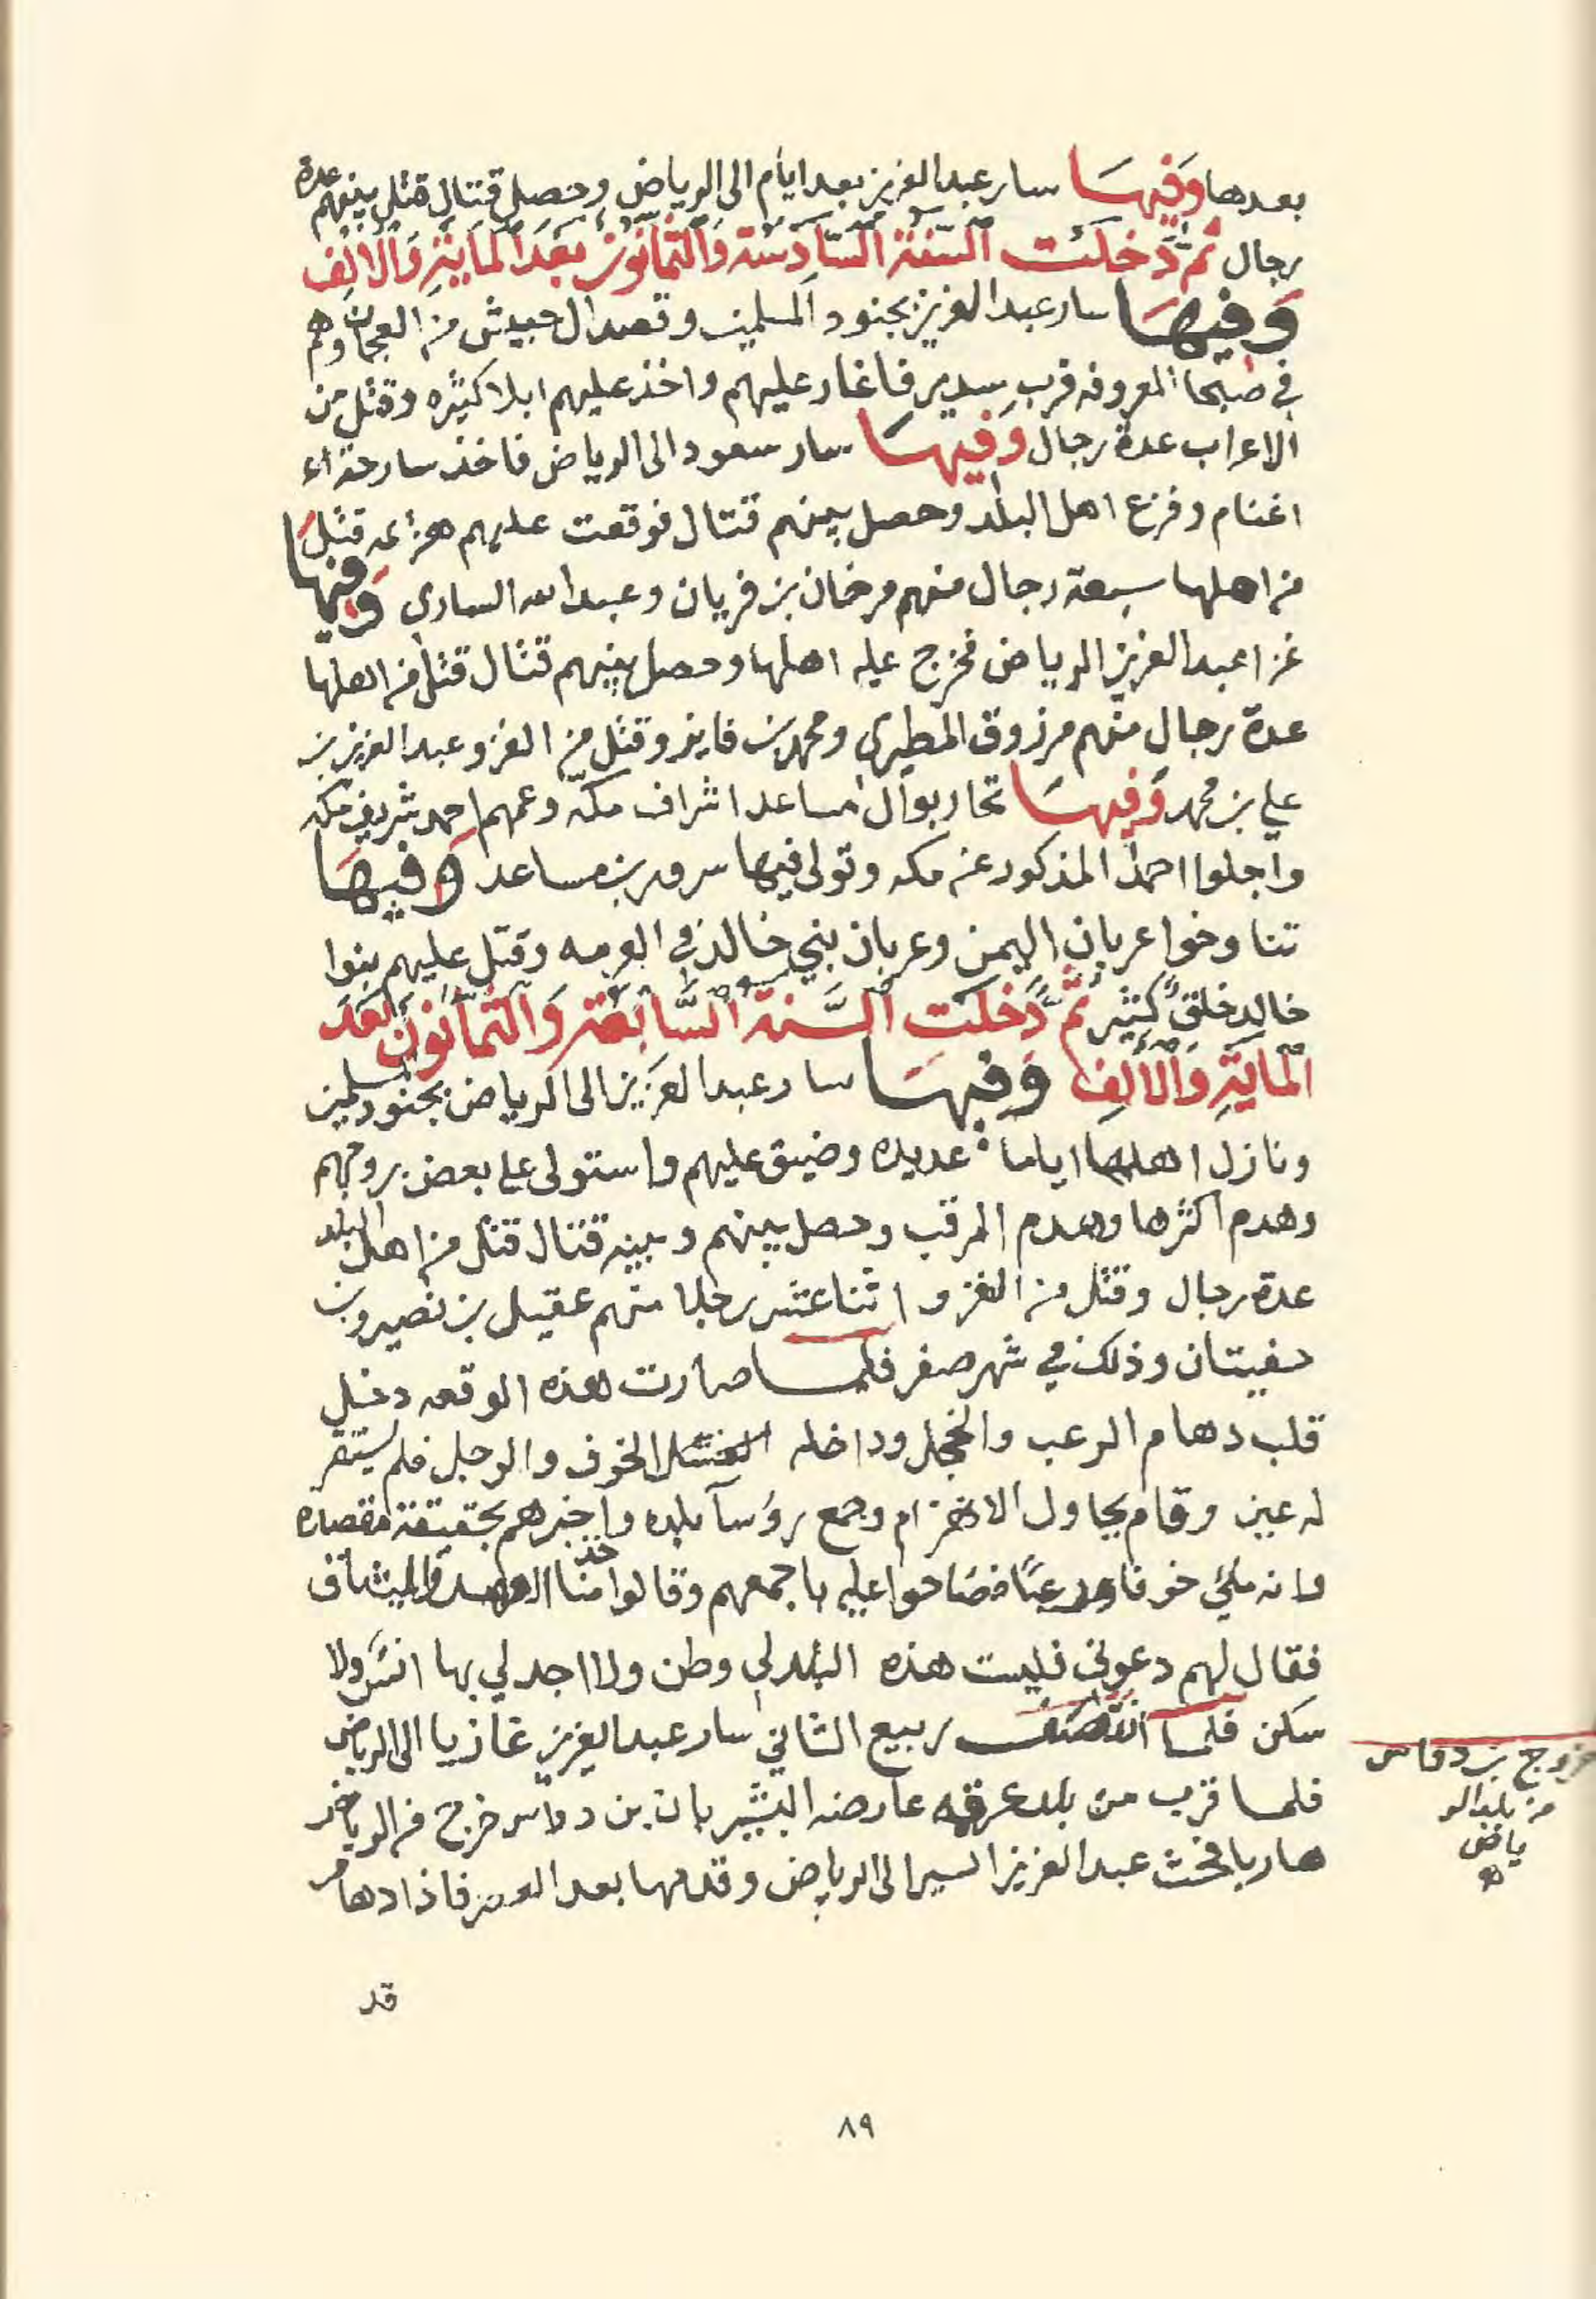 بعدها وَفِيهَا سار عبد العزيز بعد ايام الى الرياض وحصل قتال قتل بينهم عدة
رجال ثُمَّ دَخَلَت السَّنَة السَّادِسَة وَالثَّمَانُون بَعْدَ المَايَةِ وَالالف
وَفِيهَا سار عبد العزيز بجنود المسلمين وقصد ال حبيش من العجمان وهم
في صبحا المعروفه قرب سدير فاغار عليهم واخذ عليهم ابلا كثيره وقتل من
الاعراب عدة رجال وَفِيهَا سار سعود الى الرياض فاخذ سارحة
اغنام وفزع اهل البلد وحصل بينهم قتال فوقعت عليهم هزيمه قتل
من اهلها سبعة رجال منهم مرخان بن فريان وعبد الله الساري وفيها
غزا عبد العزيز الرياض فخرج عليه اهلها وحصل بينهم قتال قتل من اهلها
عدة رجال منهم مرزوق المطيري ومحمد بن فايز وقتل من الغزو عبد العزيز بن
علي بن محمد وَفِيهَا تحاربوا ال مساعد اشراف مكة وعمهم احمد شريف مكه
واجلوا احمد المذكور عن مكه وتولى فيها سرور بن مساعد وَفِيهَا
تناوخوا عربان اليمن وعربان بني خالد في العرمه وقتل عليهم بنوا
خالد خلق كثير ثُمَّ دَخَلَت السَّنَة السَّابِعَة وَالثَّمَانُون بَعْدَ
المَايَةِ وَالالف وَفِيهَا سار عبد العزيز الى الرياض بجنود المسلمين
ونازل اهلها اياما عديده وضيق عليهم واستولى على بعض بروجهم
وهدم اكثرها وهدم المرقب وحصل بينهم وبينه قتال قتل من اهل البلد
عدة رجال وقتل من الغزو اثنا عشر رجلا منهم عقيل بن نصير وبن
حفيتان وذلك في شهر صفر فلما صارت هذه الوقعه دخل
قلب دهام الرعب والخجل وداخله الخوف والوجل فلم يستقر
له عين وقام يحاول الانهزام وجمع رؤسآ بلده واخبرهم بحقيقة مقصده
وانه ملئ خوفا ورعبًا فصاحوا عليه باجمعهم وقالوا خذ منا العهد والميثاق
فقال لهم دعوني فليست هذه البلد لي وطن ولا اجد لي بها انس ولا
سكن فلما انتصف ربيع الثاني سار عبد العزيز غازيا الى الرياض
فلما قرب من بلد عرقه عارضه البشير بان بن دواس خرج من الرياض
هاربا فحث عبد العزيز السير الى الرياض وقدمها بعد العصر فاذا دهام
قد
خروج بن دواس
من بلد الر
ياض
٨٩